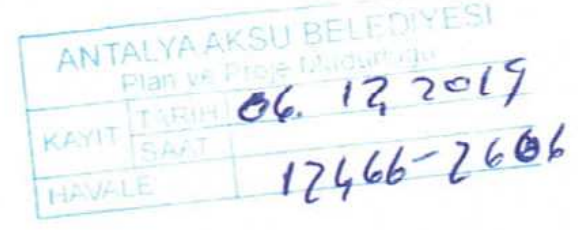 ANTALYA AKSU BELEDİYESİ
Plan ve Proje Müdürlüğü
KAYIT TARİH 06.12.2019
SAAT
HAVALE 12466-2606